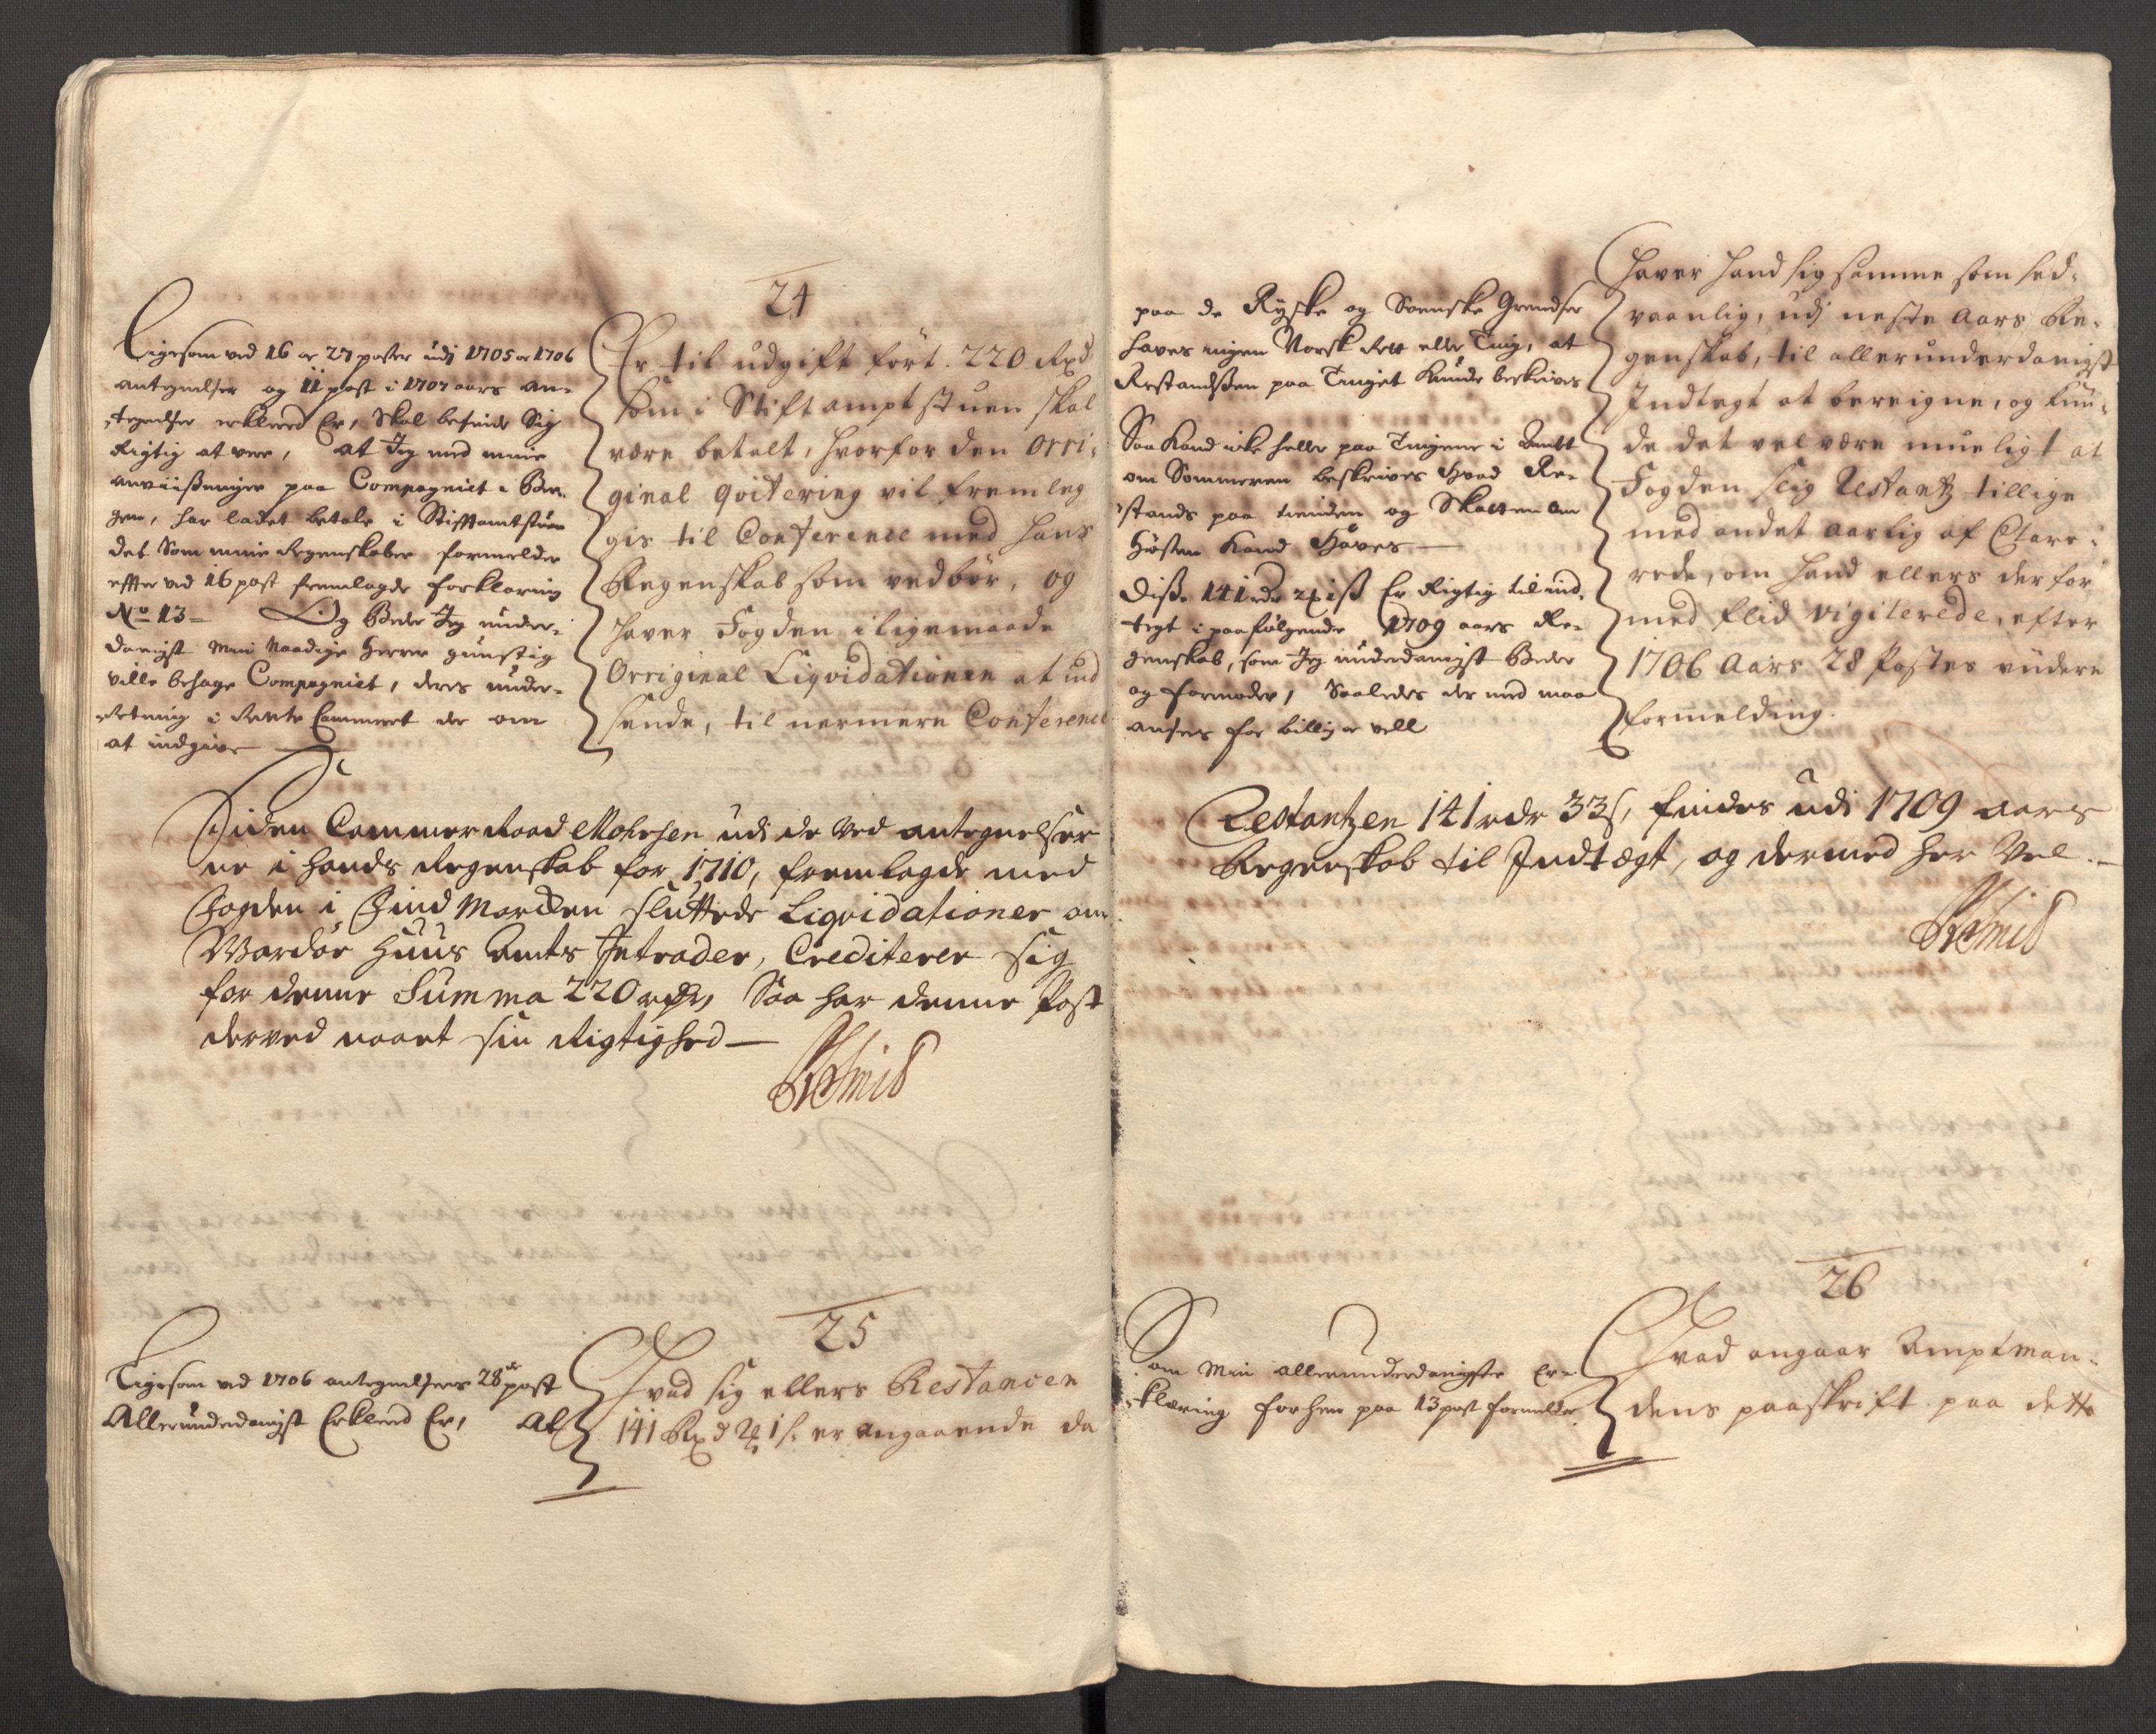 24
Ligesom ved 16 og 27 poster udj 1705 og 1706
antegnelser og 11 post i 1707 aars an-
tegnelser erklered Er, Skal befinde Sig
Rigtig at vere, at Jeg med mine
anviisninger paa Compagniet i Ber-
gen, har ladet betale i Stiftamtstuen
det Som mine Regenskaber formelder
effter ved 16 post fremlagde forklaring
No 13 - Og Beder Jeg under-
danigst mine Naadige Herrer gunstig
ville behage Compagniet, deres under-
Retning i Rente Cammeret der om
at indgive
Er til udgift ført 220 Rxd
som i Stiftamptstuen skal
være betalt, hvorfor den orri-
ginal qvitering vil fremleg
gis til Conference med hans
Regenskab som vedbør, og
haver Fogden i ligemaade
Orriginal Liqvidationen at ind
sende, til nermere Conference
Siden Cammerraad Mohrsen udi de ved antegnelser
ne i hands Regenskab for 1710, fremlagde med
Fogden i Find Marcken sluttede Liqvidationer om
Wardøe Huus Amts Intrader, Crediterer sig
for denne Summa 220 rdr, Saa har denne Post
derved naaet sin Rigtighed -
25
Ligesom ved 1706 antegnelsers 28de post
Allerunderdanigst Erklered Er, At
Hvad sig ellers Restancen
141 Rxd 2 1 s. er angaaende da
paa de Ryske og Svenske Grendser
haves ingen Norsk Rett eller Ting, at
Restandsen paa Tinget kunde beskrives
Saa kand icke heller paa Tingene i Amtet
om Sommeren beskrives Hvad Re-
stands paa tienden og Skatten om
Høsten kand Haves -
Disse 141 rdr 2 1 s Er Rigtig til ind-
tegt i paafølgende 1709 aars Re-
genskab, som Jeg underdanigst Beder
og formoder, Saaledes der med maa
ansees for billig og vell
haver hand sig samme som sed-
vaanlig, udj neste Aars Re-
genskab, til allerunderdanigst
Indtegt at bereigne, og kun-
de det vel være mueligt at
Fogden slig Restantz tillige
med andet aarlig af Clare-
rede, om hand ellers derfor
med flid vigilerede, efter
1706 Aars 28 Postes videre
formelding.
Restantzen 141 rdr 33 s, findes udi 1709 aars
Regenskab til Indtægt, og dermed her Vel. -
26
Som Min allerunderdanigste Er-
klæring forhen paa 13 post formelder
Hvad angaar Amptman-
dens paaskrift paa dette